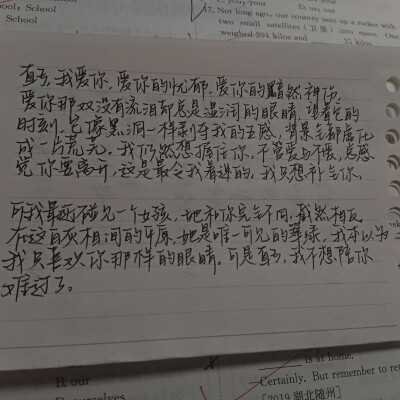 School: School
School
17. Not long ago, our country sent up a rocket with
two small satellites (卫星) into space. One
weighed 204 kilos and 25 kilos
直号,我爱你,爱你的忧郁,爱你的黯然神伤,
爱你那双没有流泪却总是湿润的眼睛,望着它的
时刻,它像黑洞一样剥夺我的五感,背景全都虚化
成一片荒芜。我仍然想握住你,不管爱与不爱,总感
觉你要离开,这是最令我着迷的,我只想补全你。
可我最近碰见一个女孩,她和你完全不同,截然相反
在这白灰相间的平原,她是唯一可见的翠绿,我本以为
我只喜欢你那样的眼睛。可是直号,我不想陪你
难过了。
R our
is at home.
—Certainly. But remember to re
ourselves
[2019 湖北随州]